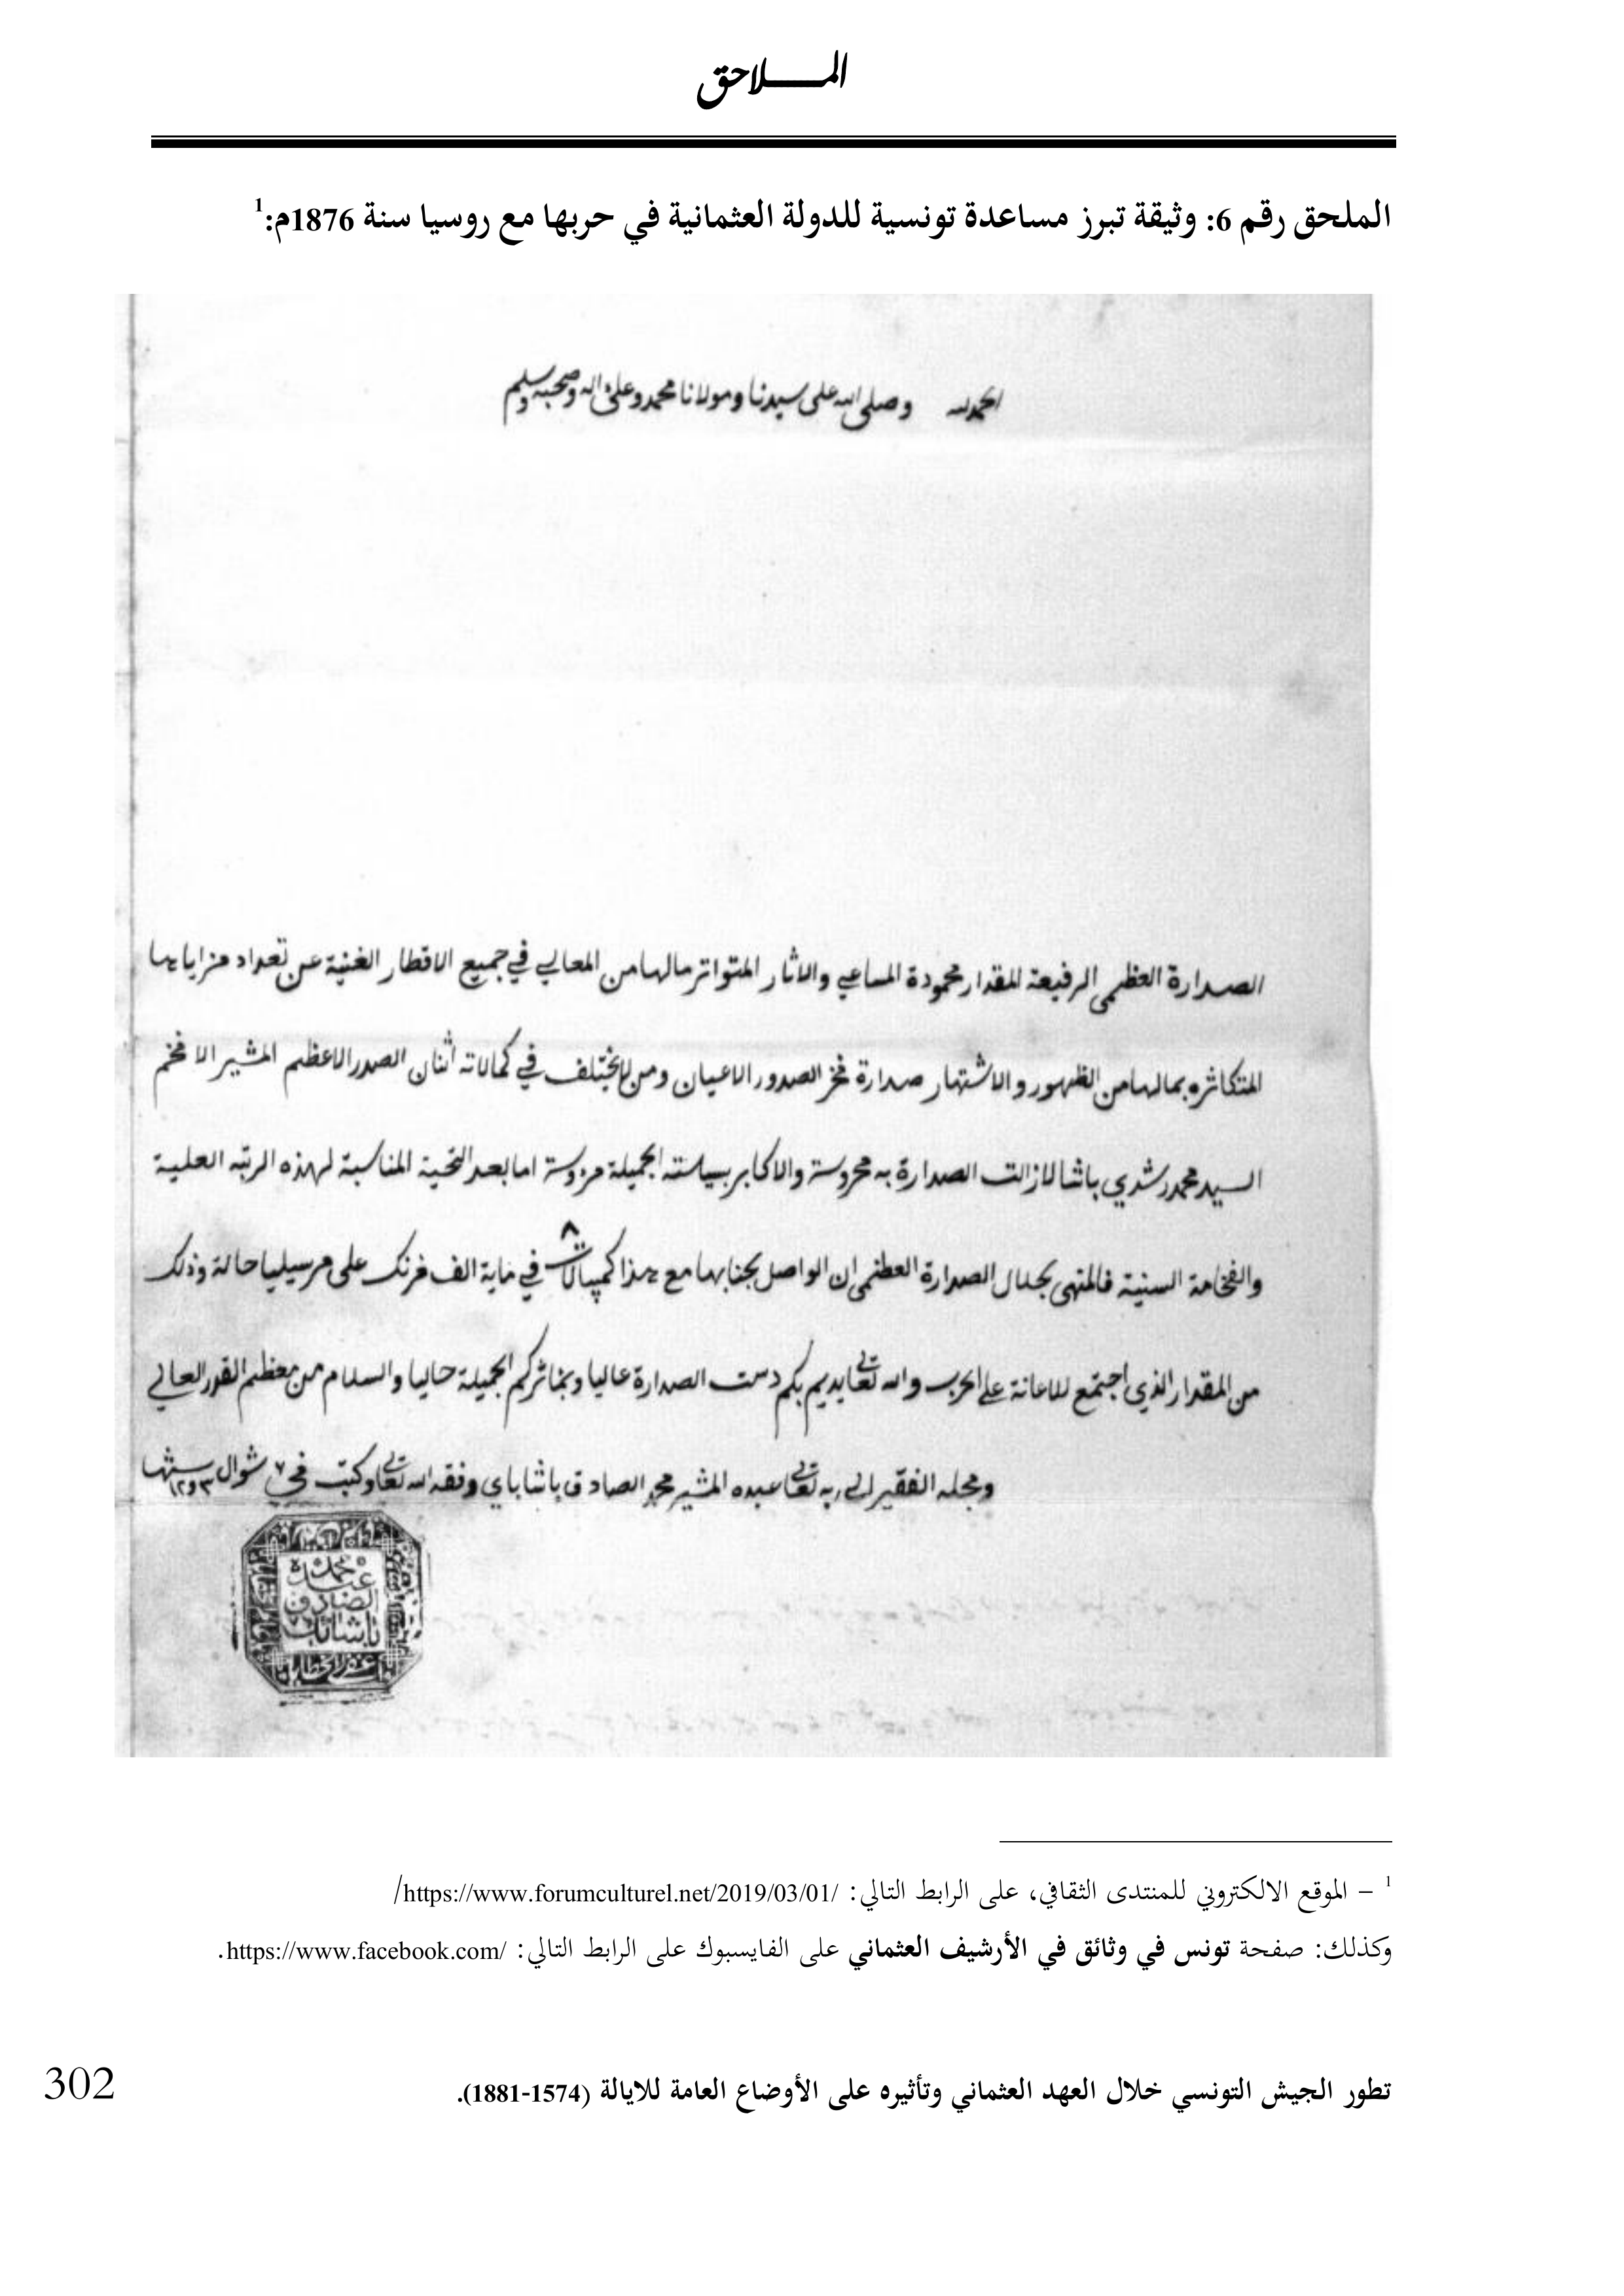 الملاحق
الملحق رقم 6: وثيقة تبرز مساعدة تونسية للدولة العثمانية في حربها مع روسيا سنة 1876م:1
الحمد لله وصلى الله على سيدنا ومولانا محمد وعلى اله وصحبه وسلم
الصدارة العظمى الرفيعة المقدار محمودة المساعي والاثار المتواتر مالها من المعالي في جميع الاقطار الغنية عن تعداد مزاياها
المتكاثره بمالها من الظهور والاشتهار صدارة فخر الصدور الاعيان ومن لا يختلف في كمالاته اثنان الصدر الاعظم المشير الافخم
السيد محمد رشدي باشا لازالت الصدارة به محروسة والاكابر بسياسته الجميلة مرؤوسة اما بعد التحية المناسبة لهذه الرتبه العلية
والفخامة السنية فالمنهى لجلال الصدارة العظمى ان الواصل لجنابها مع هذا كمبيالات ٨ في ماية الف فرنك على مرسيليا حالة وذلك
من المقدار الذي اجتمع للاعانة على الحرب والله تعالى يديم بكم دست الصدارة عاليا وبمئاثركم الجميلة حاليا والسلام من معظم القدر العالي
ومجله الفقير الى ربه تعالى عبده المشير محمد الصادق باشا باي وفقه الله تعالى وكتب في ٧ شوال سنة ١٢٩٣
محمد
عبده
الصادق
باشا باي
1 – الموقع الالكتروني للمنتدى الثقافي، على الرابط التالي: https://www.forumculturel.net/2019/03/01/
وكذلك: صفحة تونس في وثائق في الأرشيف العثماني على الفايسبوك على الرابط التالي: https://www.facebook.com/.
تطور الجيش التونسي خلال العهد العثماني وتأثيره على الأوضاع العامة للايالة (1574-1881).
302